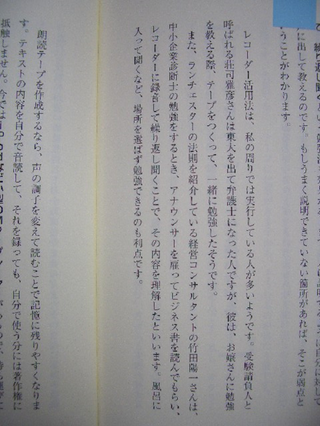 に出して教えるのです。もしうまく説明できていない箇所があれば、そこが弱点と
うことがわかります。
レコーダー活用法は、私の周りでは実行している人が多いようです。受験請負人と
呼ばれる荘司雅彦さんは東大を出て弁護士になった人ですが、彼は、お嬢さんに勉強
を教える際、テープをつくって、一緒に勉強したそうです。
また、ランチェスターの法則を紹介している経営コンサルタントの竹田陽一さんは、
中小企業診断士の勉強をするとき、アナウンサーを雇ってビジネス書を読んでもらい、
レコーダーに録音して繰り返し聞くことで、その内容を理解したといいます。風呂に
入って聞くなど、場所を選ばず勉強できるのも利点です。
朗読テープを作成するなら、声の調子を変えて読むことで記憶に残りやすくなりま
す。テキストの内容を自分で音読して、それを録っても、自分で使う分には著作権に
抵触しません。今では